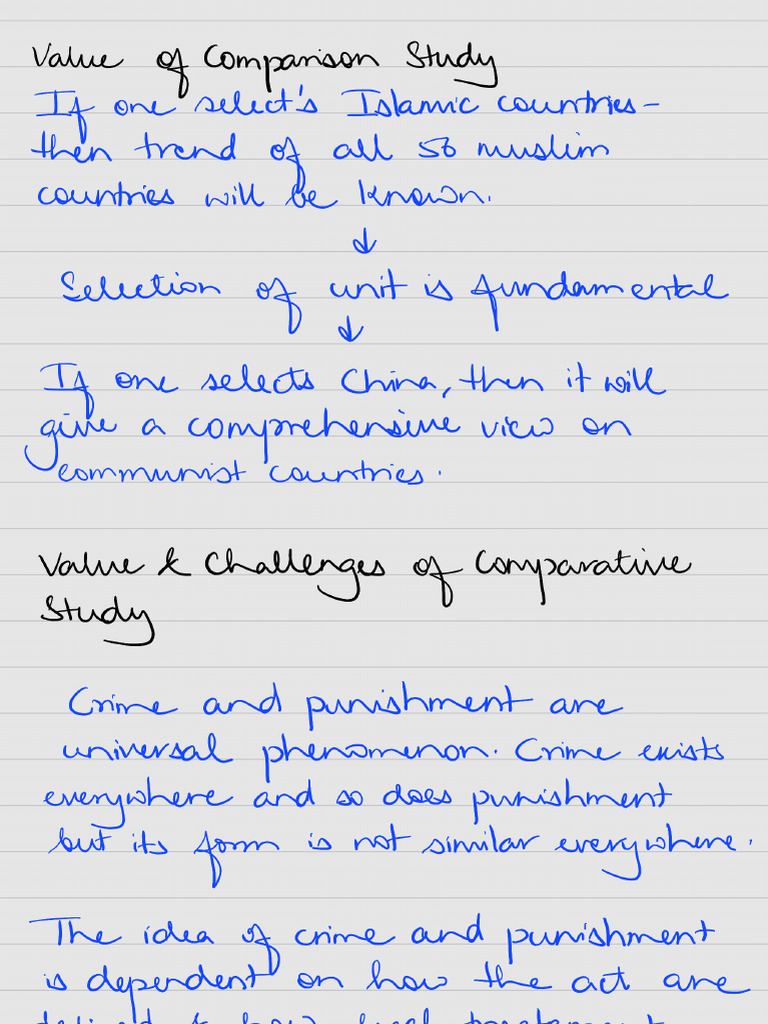 Value of Comparison Study
If one select's Islamic countries-
then trend of all 56 muslim
countries will be known.
↓
Selection of unit is fundamental
↓
If one selects China, then it will
give a comprehensive view on
communist countries.
Value & Challenges of Comparative
Study
Crime and punishment are
universal phenomenon. Crime exists
everywhere and so does punishment
but its form is not similar everywhere.
The idea of crime and punishment
is dependent on how the act are
defined & how